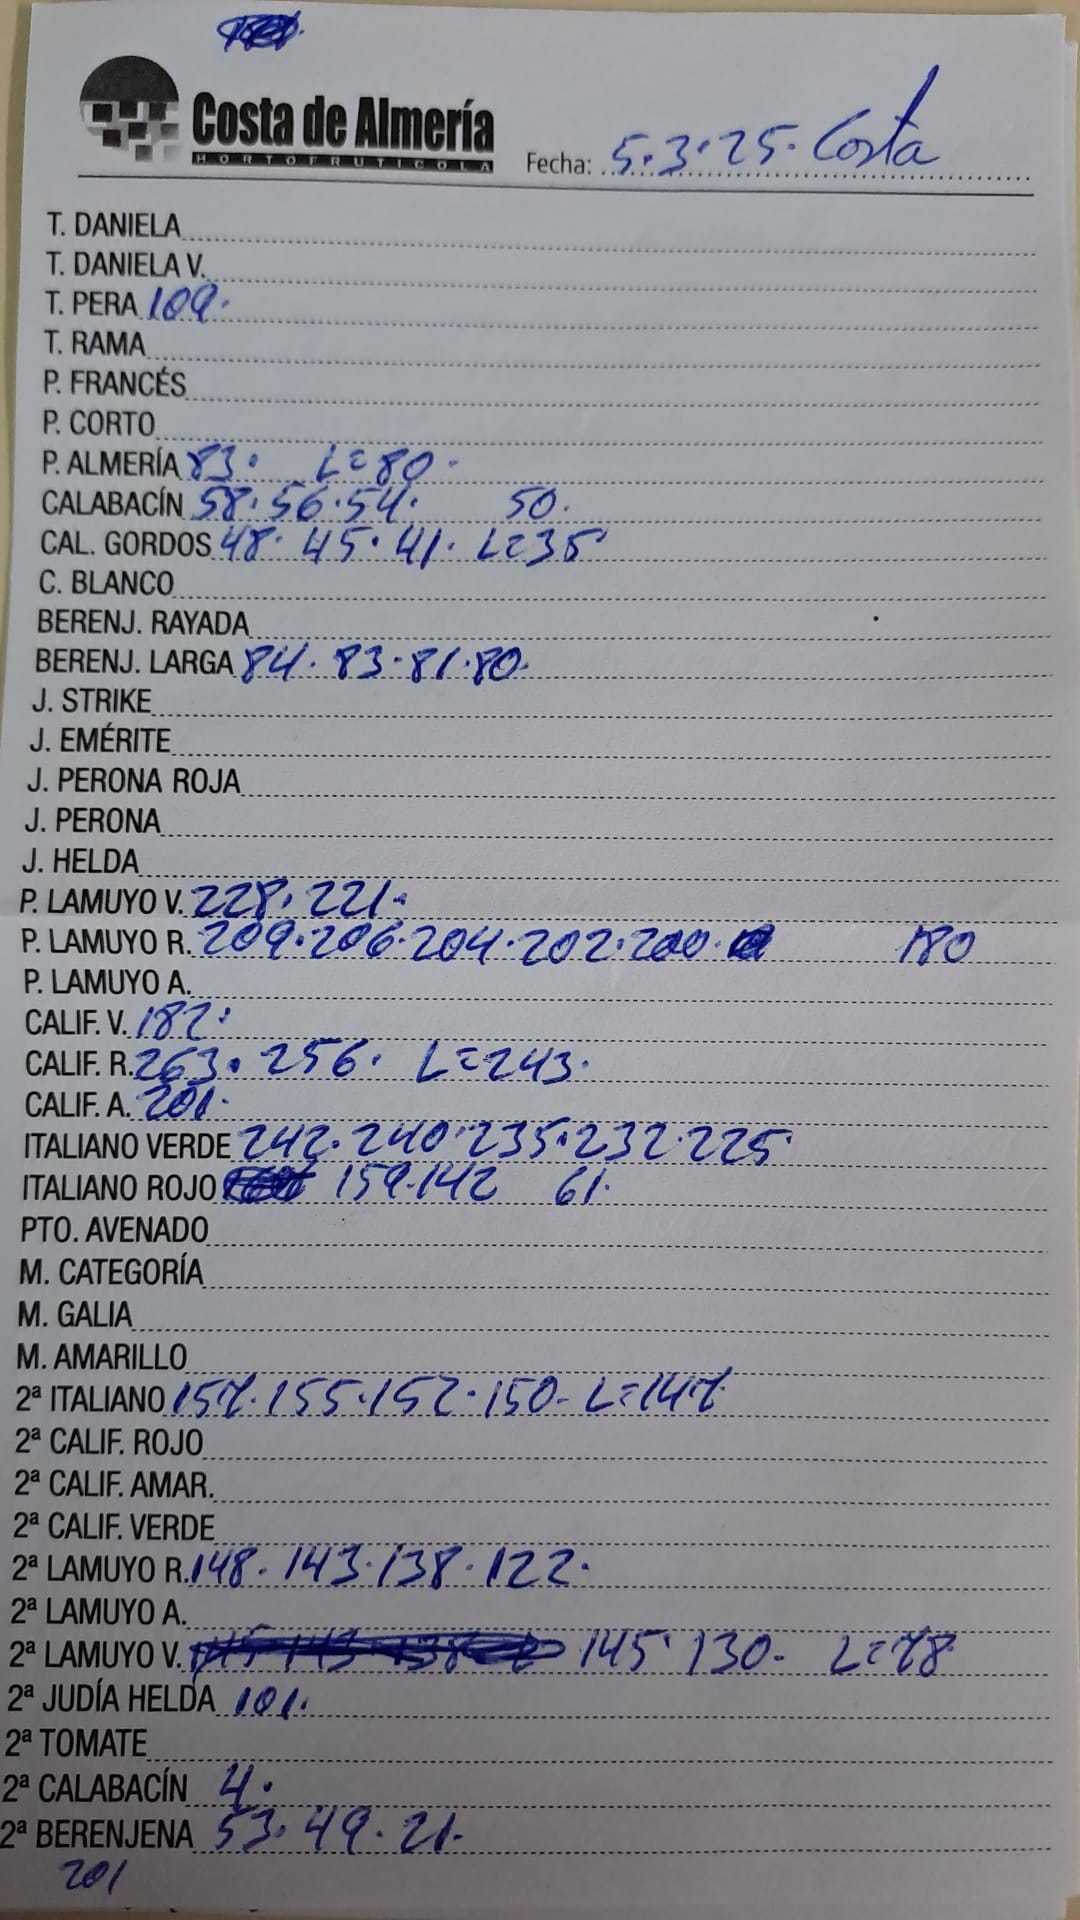 Costa de Almería
HORTOFRUTICOLA
Fecha: 5.3.25. Costa
T. DANIELA
T. DANIELA V.
T. PERA 109.
T. RAMA
P. FRANCÉS
P. CORTO
P. ALMERÍA 83. L=80.
CALABACÍN 58.56.54. 50.
CAL. GORDOS 48. 45.41. L=35
C. BLANCO
BERENJ. RAYADA
BERENJ. LARGA 84. 83.81.80.
J. STRIKE
J. EMÉRITE
J. PERONA ROJA
J. PERONA
J. HELDA
P. LAMUYO V. 228. 221.
P. LAMUYO R. 209.206.204.202.200. 180
P. LAMUYO A.
CALIF. V. 182.
CALIF. R. 263. 256. L=243.
CALIF. A. 201.
ITALIANO VERDE 242.240.235.232.225
ITALIANO ROJO 159.142 61.
PTO. AVENADO
M. CATEGORÍA
M. GALIA
M. AMARILLO
2ª ITALIANO 157.155.152.150- L=147
2ª CALIF. ROJO
2ª CALIF. AMAR.
2ª CALIF. VERDE
2ª LAMUYO R. 148. 143.138.122.
2ª LAMUYO A.
2ª LAMUYO V. 145. 130. L=78
2ª JUDÍA HELDA 101.
2ª TOMATE
2ª CALABACÍN 4.
2ª BERENJENA 53.49.21.
201